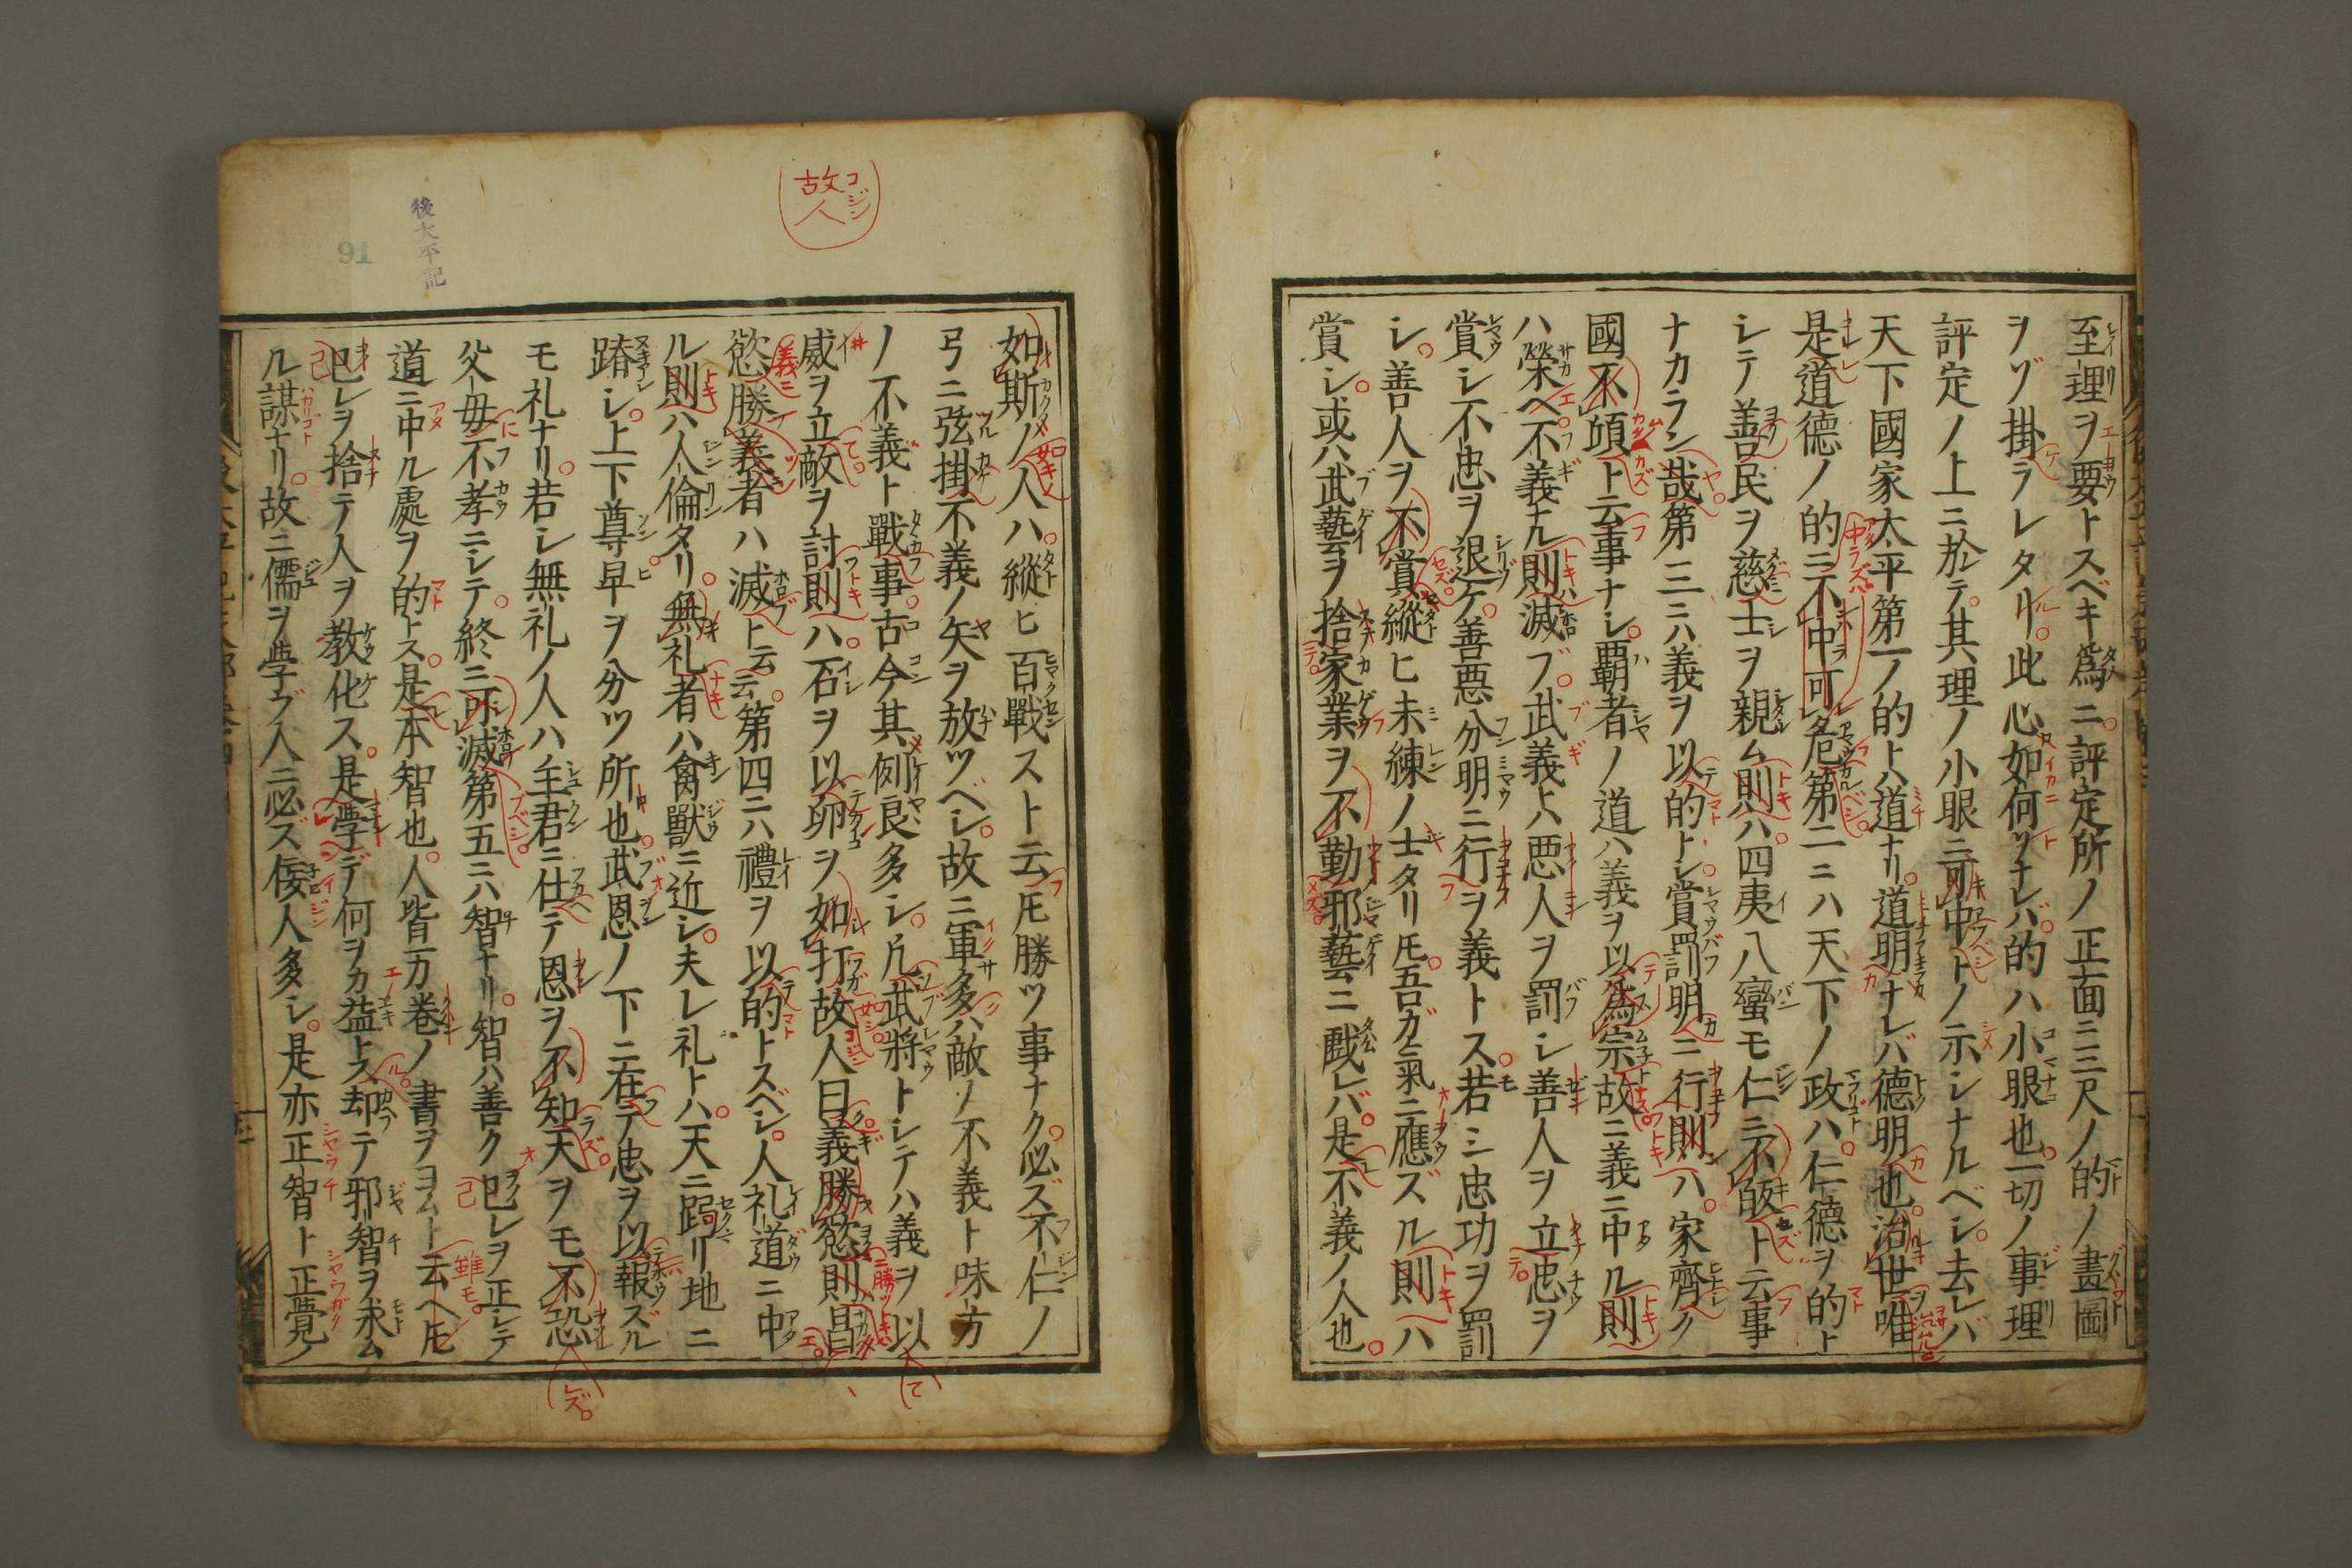 至理ヲ要トスベキ爲ニ評定所ノ正面ニ三尺ノ的ノ畫圖
ヲゾ掛ラレタリ此心如何ツナレバ的ハ小眼也一切ノ事理
評定ノ上ニ於テ其理ノ小眼ニ可中トノ示シナルベシ去レバ
天下國家太平第一ノ的トハ道ナリ道明ナレバ德明也治世唯
是道德ノ的ニ不中可危第二ニハ天下ノ政ハ仁德ヲ的ト
シテ善民ヲ慈士ヲ親ム則ハ四夷八蠻モ仁ニ不皈ト云事
ナカラン哉第三ニハ義ヲ以的トシ賞罰明ニ行則ハ家齊ク
國不傾ト云事ナシ覇者ノ道ハ義ヲ以爲宗故ニ義ニ中ル則
ハ榮ヘ不義ナル則滅ブ武義トハ悪人ヲ罰シ善人ヲ立忠ヲ
賞シ不忠ヲ退ケ善悪分明ニ行ヲ義トス若シ忠功ヲ罰
シ善人ヲ不賞縱ヒ未練ノ士タリ𪜈吾ガ氣ニ應ズル則ハ
賞シ或ハ武藝ヲ捨家業ヲ不勤邪藝ニ戯レバ是不義ノ人也
故人
コジン
後太平記
91
如斯ノ人ハ縱ヒ百戰スト云𪜈勝ツ事ナク必ズ不仁ノ
弓ニ弦掛不義ノ矢ヲ放ツベシ故ニ軍多ハ敵ノ不義ト味方
ノ不義ト戰事古今其例良多シ凢武將トシテハ義ヲ以
威ヲ立敵ヲ討則ハ石ヲ以卵ヲ如打故人曰義勝慾則昌
慾勝義者ハ滅ト云云第四ニハ禮ヲ以的トスベシ人礼道ニ中
ル則ハ人倫タリ無礼者ハ禽獸ニ近シ夫レ礼トハ天ニ跼リ地ニ
蹐シ上下尊卑ヲ分ツ所也武恩ノ下ニ在テ忠ヲ以報ズル
モ礼ナリ若シ無礼ノ人ハ主君ニ仕テ恩ヲ不知天ヲモ不恐
父母不孝ニシテ終ニ可滅第五ニハ智ナリ智ハ善ク己レヲ正シテ
道ニ中ル處ヲ的トス是本智也人皆万卷ノ書ヲヨムト云ヘ𪜈
己レヲ捨テ人ヲ教化ス是學デ何ヲカ益トス却テ邪智ヲ求ム
ル謀ナリ故ニ儒ヲ學ブ人ニ必ズ佞人多シ是亦正智ト正覺ノ